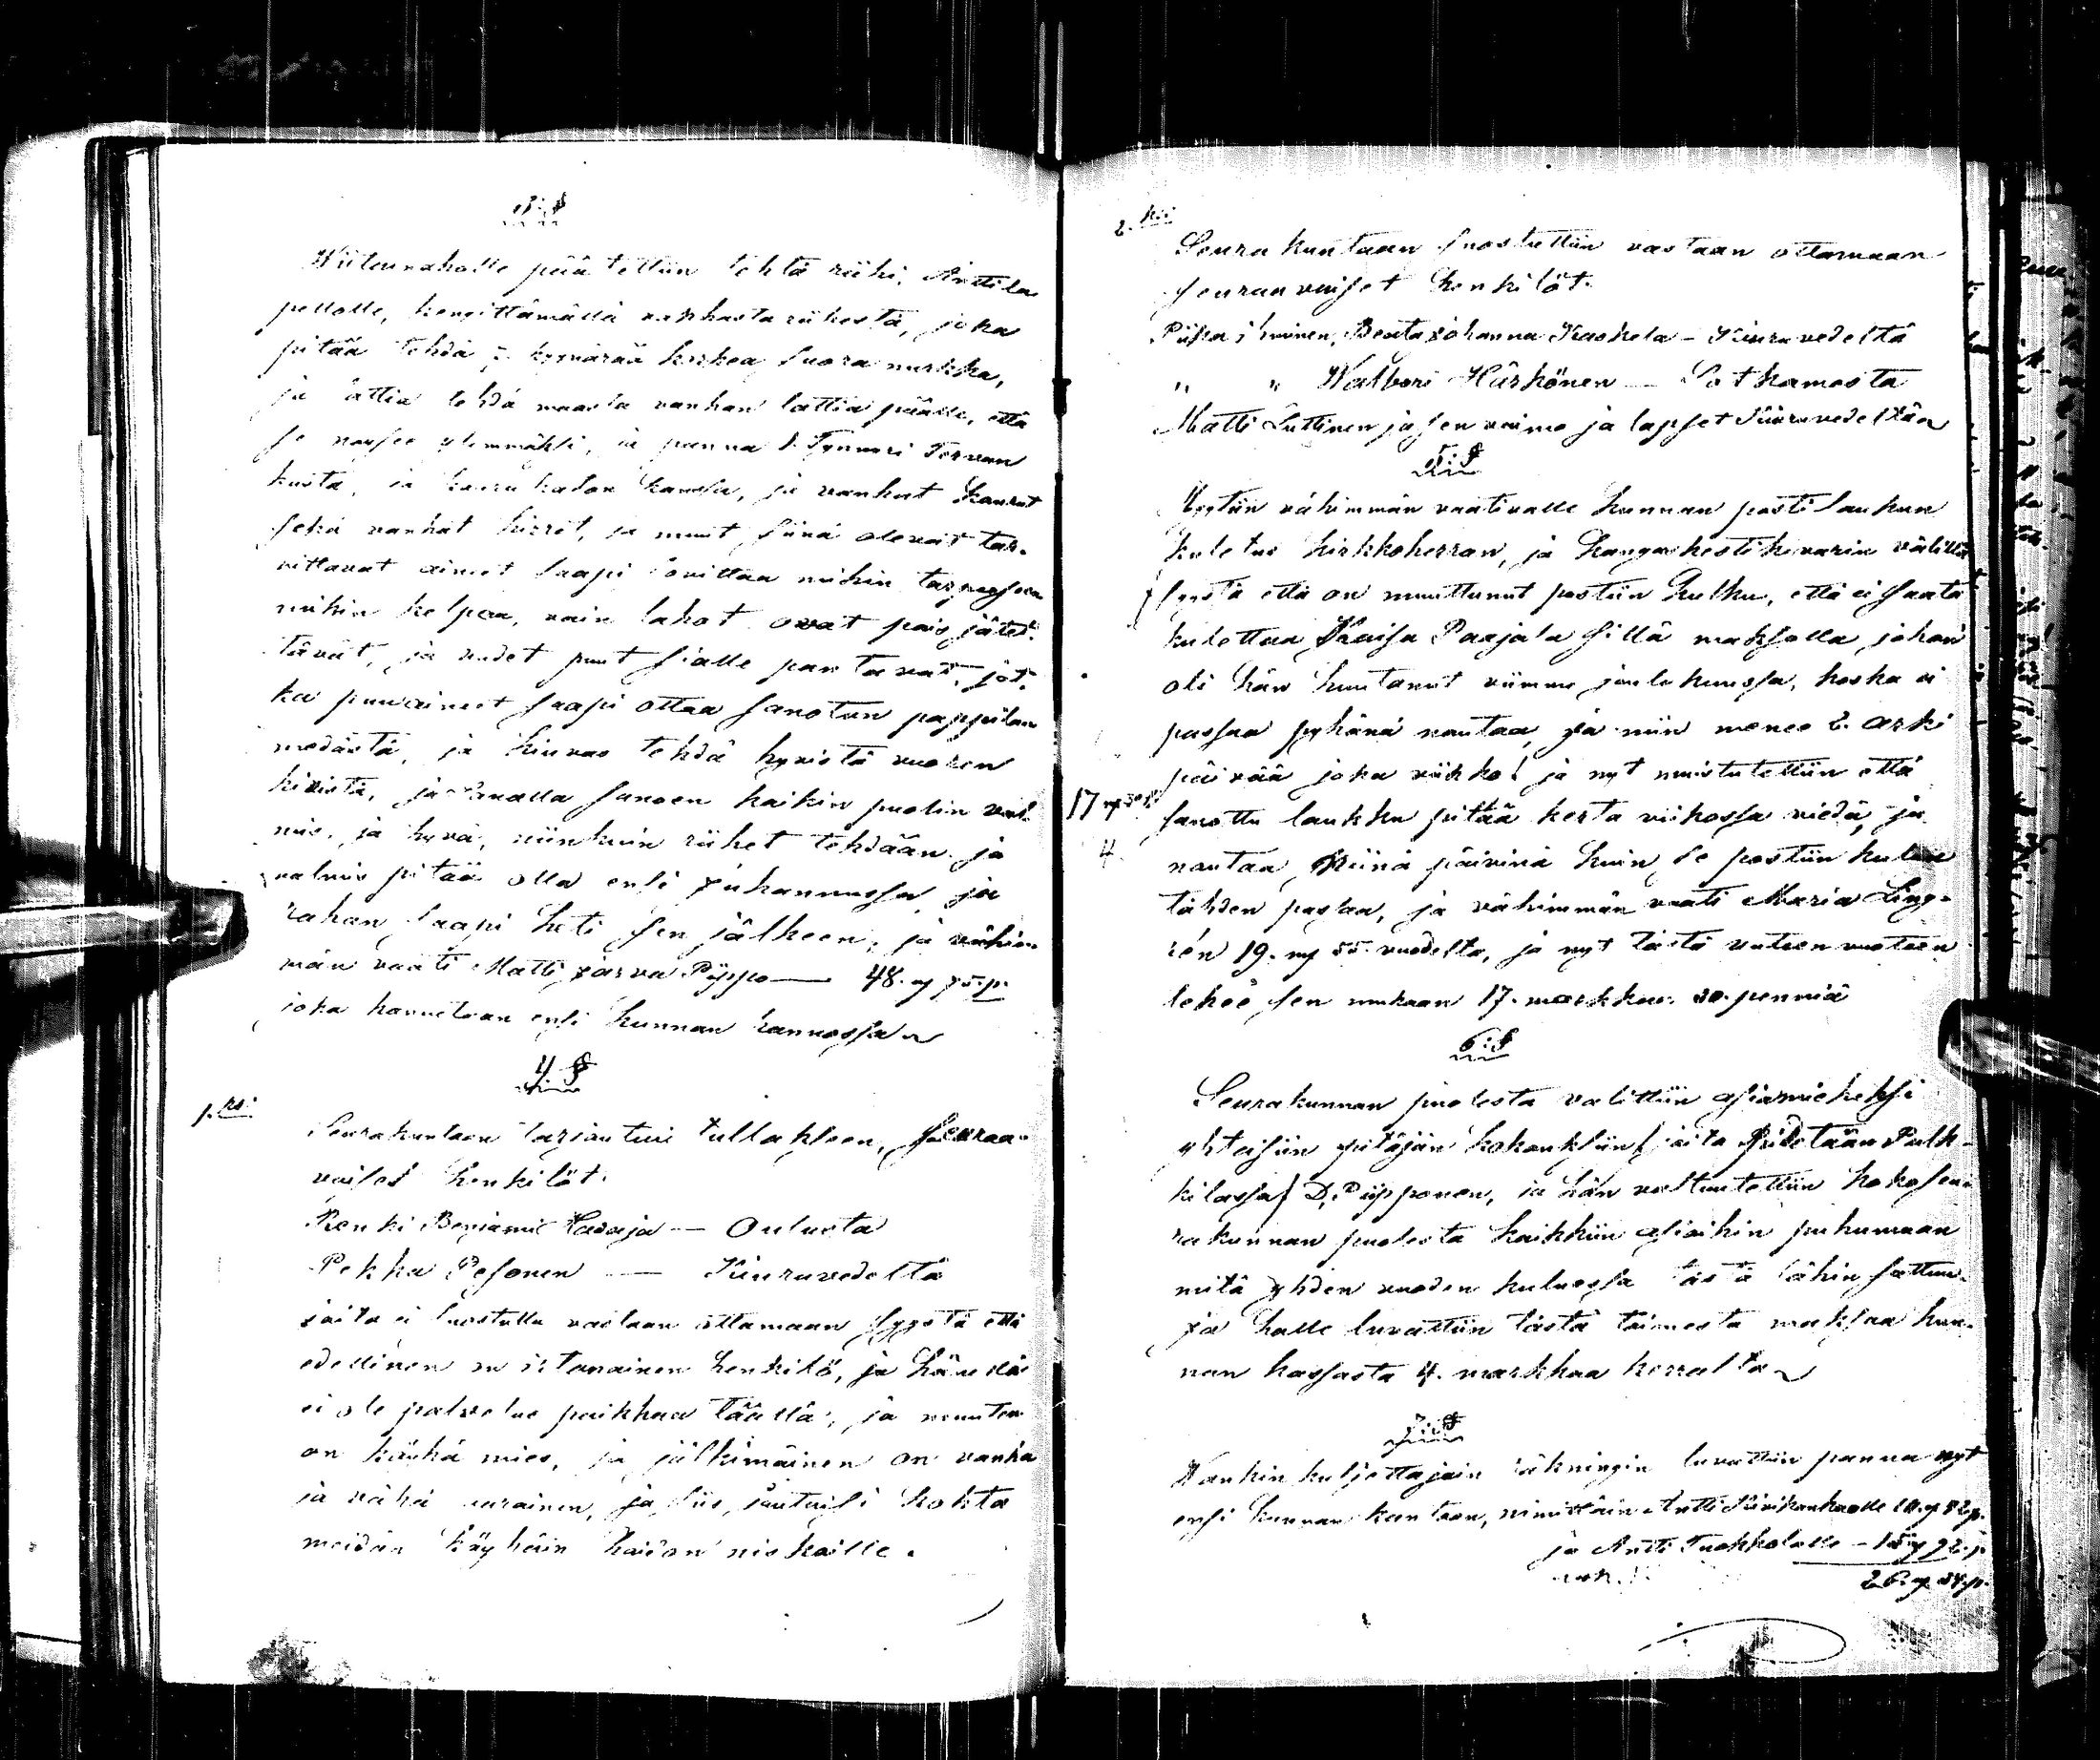 3:§
päätettiin tehtä riihi, Anttila
pellolle, kengittämällä vahhasta riihestä, joka
pitää tehdä kyynärää korkea suora nurkka,
ja lattia tehdä maasta vanhan lattia päälle, että
se nousee ylemmäksi, ja panna 1. Tynnyri Tervan
kusta, ja katon kanssa, ja vanhat
sekä vanhat hirret, ja muut siinä olevat tar-
vittavat aineet saapi sovittaa mihin tarpeeseen
mihin kelpaa, vain lahot ovat pois jätet-
tävät, ja uudet puut sialle pantavat, jot-
ka puuaineet saapi ottaa sanotun pappilan
medästä, ja kiuvas tehdä hyvistä vuoren
kivistä, ja sanalla sanoen kaikin puolin val-
mis, ja hyvä, niinkuin riihet tehdään ja
valmis pitää olla ensi juhannussa, ja
rahan saapi heti sen jälkeen, ja vähim-
män vaati Matti Järva Piippo — 48. 75.p.
joka kannetaan ensi kunnan kannossa
4 §
1.ksi
Seurakuntaan tarjoutuvi tullakseen, seuraa-
vaiset henkilöt.
Renki Benjamin — Oulusta
Pekka Pesonen — Kiuruvedeltä
joita ei suostuttu vastaan ottamaan syystä että
edellinen on irtonainen henkilö, ja hänellä
ei ole palvelus paikkaa täällä, ja muuten
on köyhä mies, ja jälkimäinen on vanha
ja vähä varainen, ja siis joutuisi kohta
meidän köyhäin hoidon niskoille.
2.ksi
Seurakuntaan suostuttiin vastaan ottamaan
seuraavaiset henkilöt.
Piika ihminen, Beata Johanna Kaskela — Kiuruvedeltä
" " Walbori Härkönen — Sotkamosta
Matti Luttinen ja sen vaimo ja lapset Kiuruvedeltä
5:§
Myytiin vähimmän vaativalle kunnan posti laukun
kuletus kirkkoherran, ja kangas kestikievarin välillä
syystä että on muuttunut postiin kulku, että ei saata
kulettaa Kaisa Paajala sillä maksolla, johon
oli hän huutanut viimme joulukuussa, koska ei
passaa pyhänä noutaa, ja niin menee 2. arki
päivää joka viikko! ja nyt muistutettiin että
17 50
sanottu laukku pitää kerta viikossa viedä, ja
4.
noutaa, Niinä päivinä kuin se postiin kulun
tähden passaa, ja vähimmän vaati Maria Ling-
rén 19. 55. vuodelta, ja nyt tästä uuteen vuoteen
tekee sen mukaan 17. markkaa 50. penniä
6:§
Seurakunnan puolesta valittiin asiamieheksi
yhteisiin pitäjän kokouksiin (joita pidetään Pulk-
kilassa) D. Piipponen, ja hän valtuutettiin koko seu-
rakunnan puolesta kaikkiin asioihin puhumaan
mitä yhden vuoden kuluessa tästä lähin sattuu,
ja halle luvattiin tästä toimesta maksaa kun-
nan kassasta 4. markkaa kerralta
7:§
Wankin kuljettajain räkningin luvattiin panna nyt
ensi kunnan kantoon, nimittäin Antti
ja Antti Tuokkolalle — 15. 72.p.
26. 54.p.